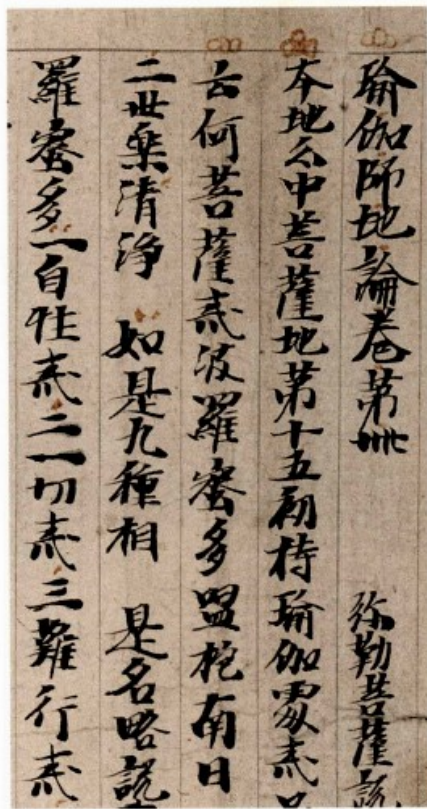 瑜伽師地論卷第卌 弥勒菩薩說
本地分中菩薩地第十五初持瑜伽處戒品
云何菩薩戒波羅蜜多嗢柁南曰
二世樂清淨 如是九種相 是名略說
羅蜜多一自性戒二一切戒三難行戒